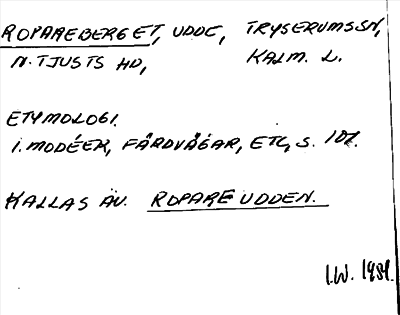 ROPAREBERGET, UDDE, TRYSERUMS SN,
N. TJUSTS HD, KALM. L.
ETYMOLOGI.
I. MODÉER, FÄRDVÄGAR, ETC, S. 101.
KALLAS ÄV. ROPAREUDDEN.
I.W. 1984.